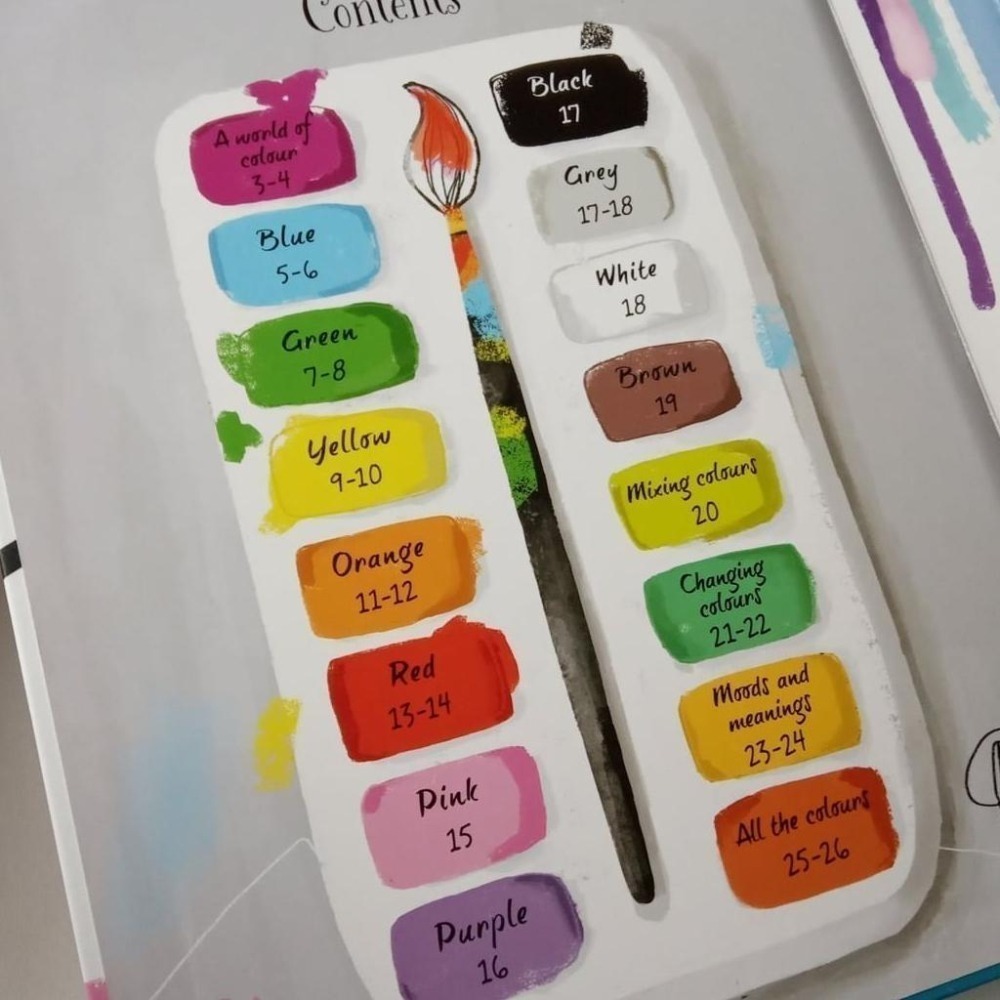 Contents
A world of
colour
3-4
Blue
5-6
Green
7-8
Yellow
9-10
Orange
11-12
Red
13-14
Pink
15
Purple
16
Black
17
Grey
17-18
White
18
Brown
19
Mixing colours
20
Changing
colours
21-22
Moods and
meanings
23-24
All the colours
25-26